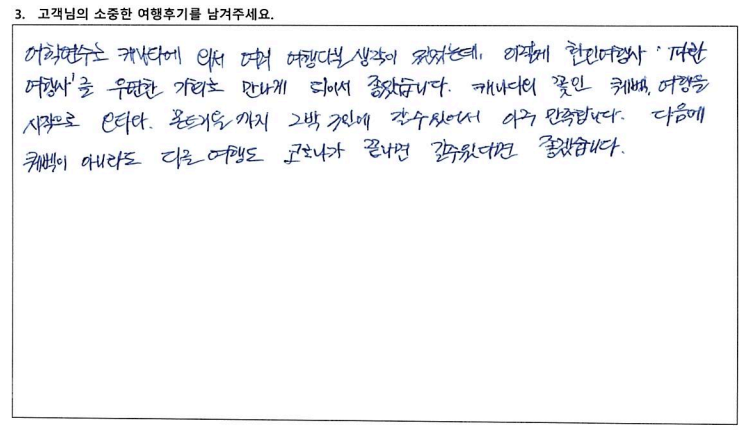 3. 고객님의 소중한 여행후기를 남겨주세요.
어학연수로 캐나다에 와서 여러 여행다닐 생각이 있었는데, 이렇게 한인여행사 '파란
여행사'를 우편한 기회로 만나게 되어서 좋았습니다. 캐나다의 꽃인 퀘벡, 여행을
시작으로 오타와. 몬트리올까지 2박 3일에 갈수있어서 아주 만족합니다. 다음에
퀘벡이 아니라도 다른 여행도 코로나가 끝나면 갈수있다면 좋겠습니다.